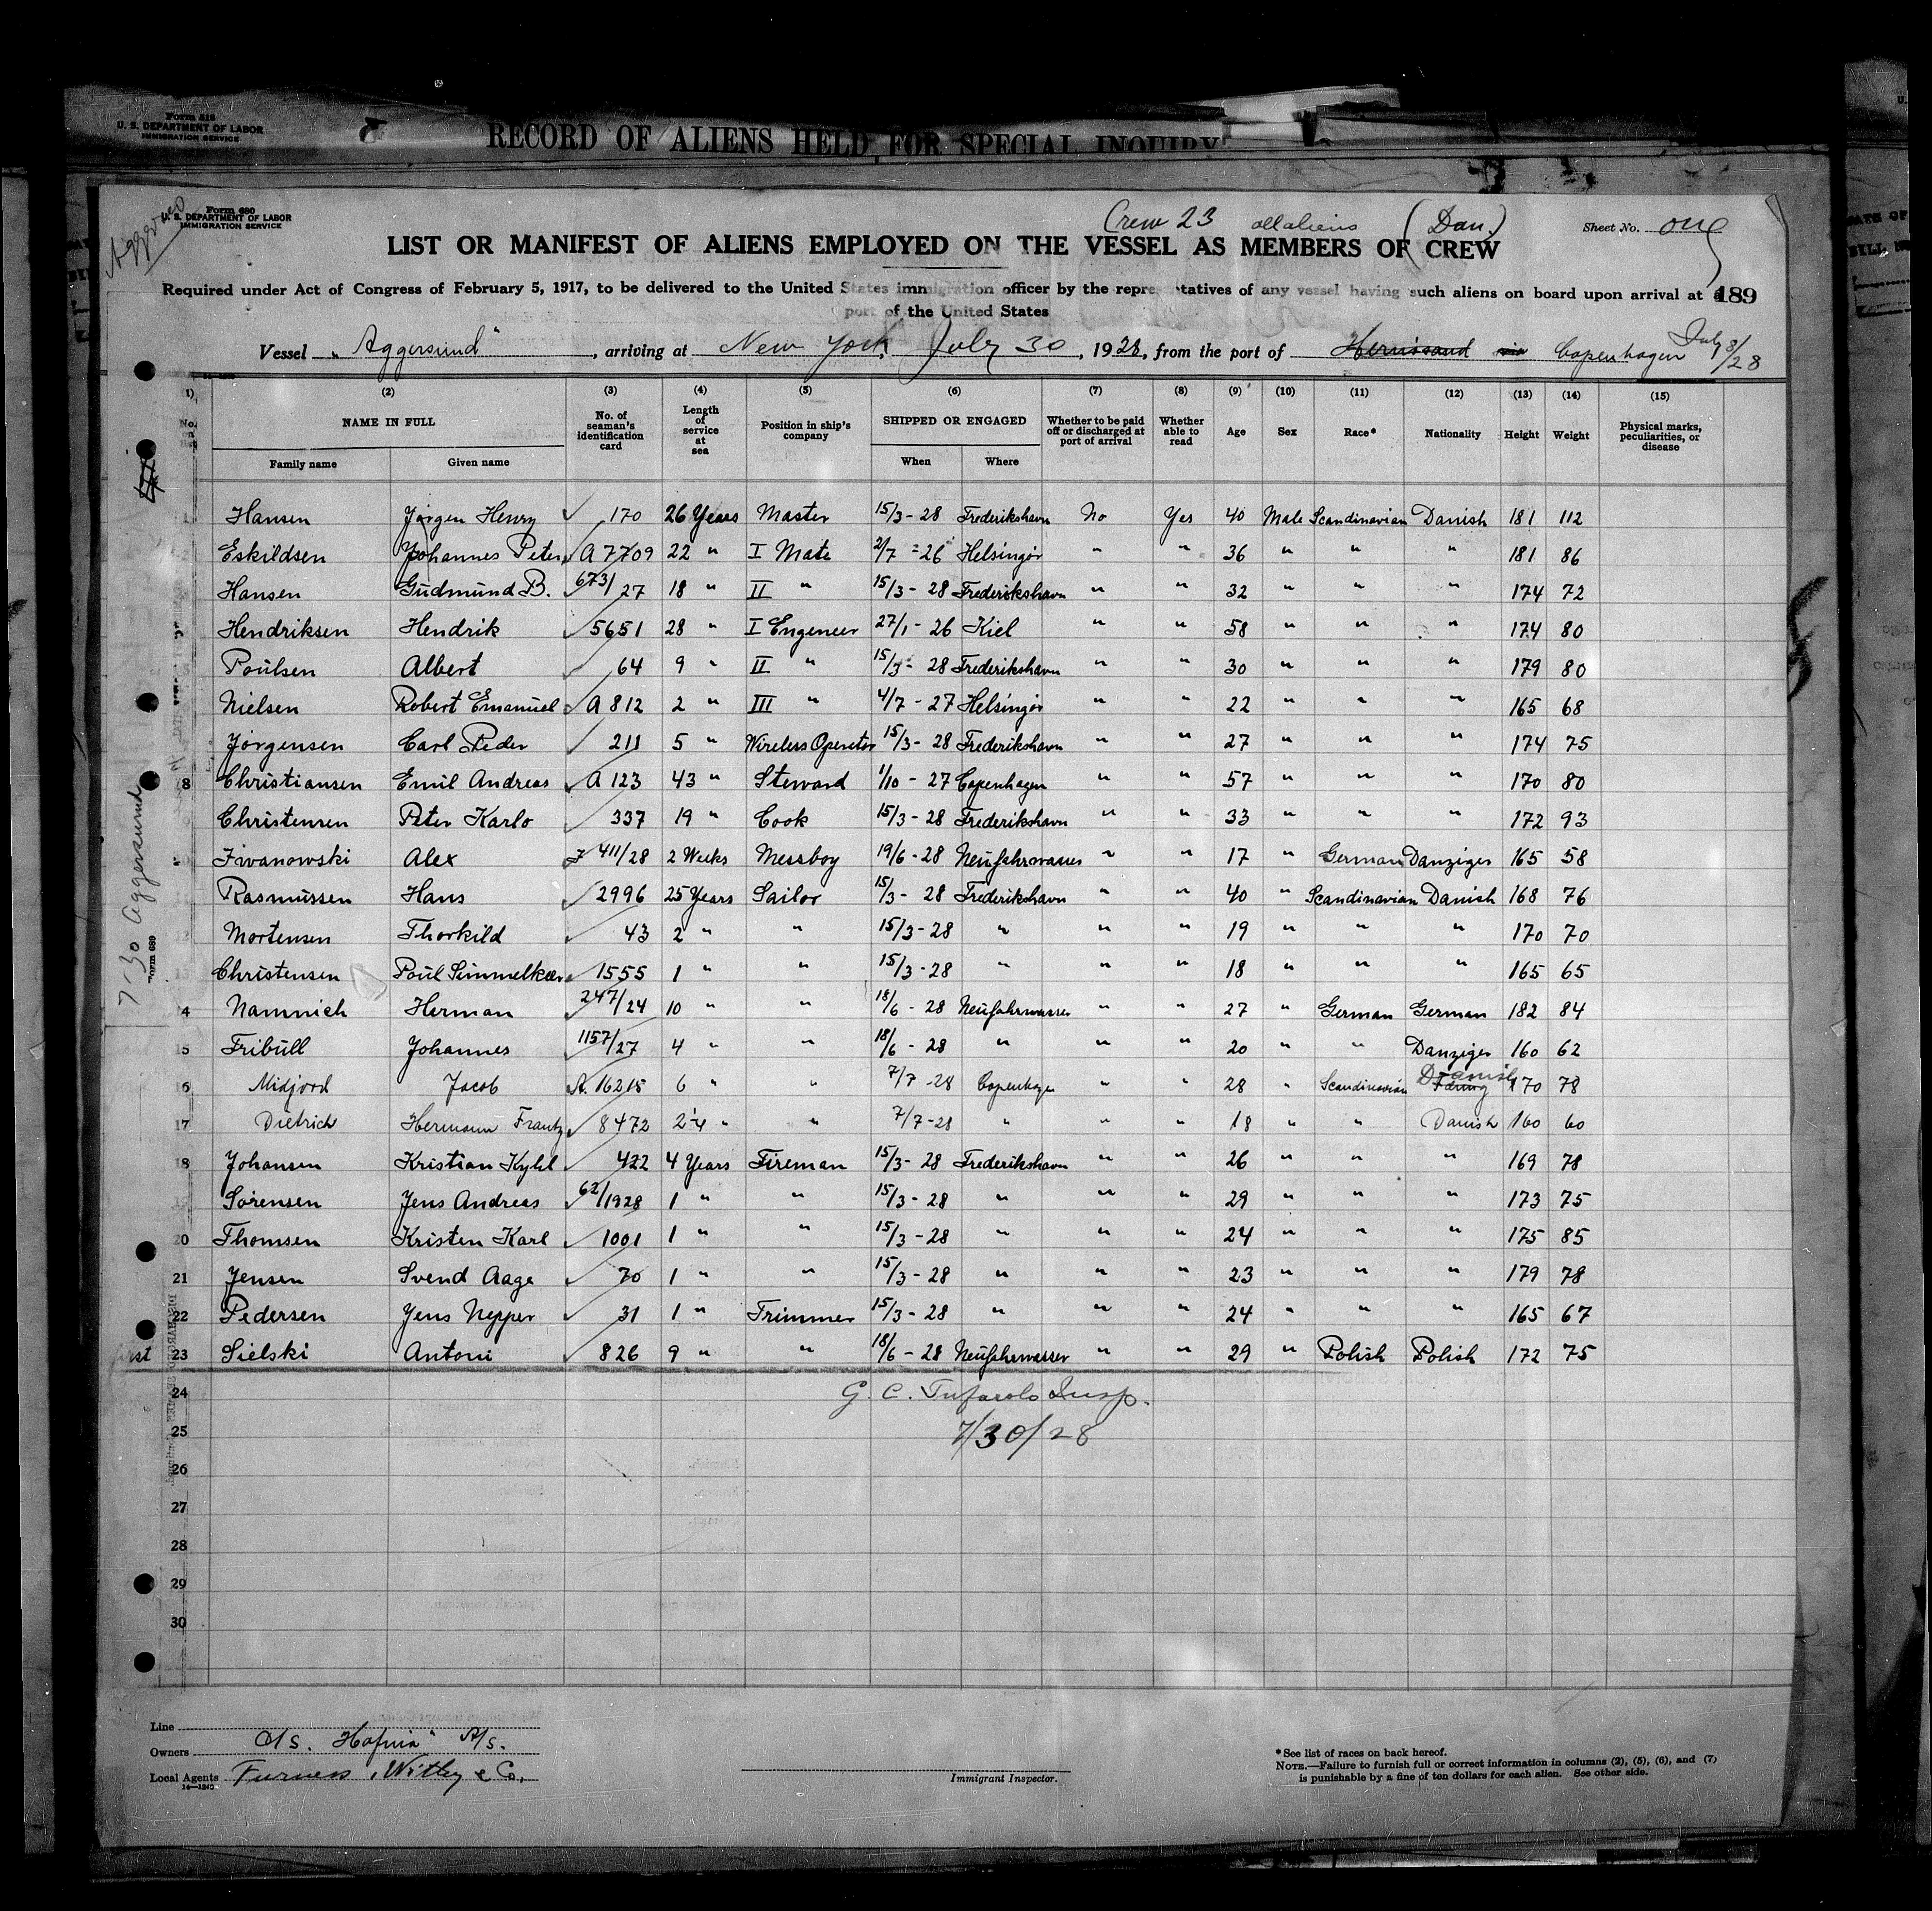 Form 618
U. S. DEPARTMENT OF LABOR
IMMIGRATION SERVICE
RECORD OF ALIENS HELD FOR SPECIAL INQUIRY
Form 680
U. S. DEPARTMENT OF LABOR
IMMIGRATION SERVICE
Crew 23 all aliens (Dan.)
Sheet No. one
LIST OR MANIFEST OF ALIENS EMPLOYED ON THE VESSEL AS MEMBERS OF CREW
Required under Act of Congress of February 5, 1917, to be delivered to the United States immigration officer by the representatives of any vessel having such aliens on board upon arrival at a 189
port of the United States
Vessel "Aggersund", arriving at New York, July 30, 1928, from the port of Hernösand via Copenhagen July 8/28
(1) (2) (3) (4) (5) (6) (7) (8) (9) (10) (11) (12) (13) (14) (15)
No. on list NAME IN FULL Family name Given name No. of seaman's identification card Length of service at sea Position in ship's company SHIPPED OR ENGAGED When Where Whether to be paid off or discharged at port of arrival Whether able to read Age Sex Race* Nationality Height Weight Physical marks, peculiarities, or disease
1 Hansen Jørgen Henry 170 26 Years Master 15/3-28 Frederikshavn No Yes 40 Male Scandinavian Danish 181 112
Eskildsen Johannes Peter A 7709 22 " I Mate 2/7-26 Helsingør " " 36 " " " 181 86
Hansen Gudmund B. 673/27 18 " II " 15/3-28 Frederikshavn " " 32 " " " 174 72
Hendriksen Hendrik 5651 28 " I Engeneer 27/1-26 Kiel " " 58 " " " 174 80
Poulsen Albert 64 9 " II " 15/3-28 Frederikshavn " " 30 " " " 179 80
Nielsen Robert Emanuel A 812 2 " III " 4/7-27 Helsingør " " 22 " " " 165 68
Jørgensen Carl Peder 211 5 " Wireless Operator 15/3-28 Frederikshavn " " 27 " " " 174 75
8 Christiansen Emil Andreas A 123 43 " Steward 1/10-27 Copenhagen " " 57 " " " 170 80
Christensen Peter Karlo 337 19 " Cook 15/3-28 Frederikshavn " " 33 " " " 172 93
Iwanowski Alex 411/28 2 Weeks Messboy 19/6-28 Neufahrwasser " " 17 " German Danziger 165 58
Rasmussen Hans 2996 25 Years Sailor 15/3-28 Frederikshavn " " 40 " Scandinavian Danish 168 76
Mortensen Thorkild 43 2 " " 15/3-28 " " " 19 " " " 170 70
Christensen Poul Simmelkær 1555 1 " " 15/3-28 " " " 18 " " " 165 65
4 Namnich Herman 247/24 10 " " 18/6-28 Neufahrwasser " " 27 " German German 182 84
15 Fribull Johannes 1157/27 4 " " 18/6-28 " " " 20 " " Danziger 160 62
16 Midjord Jacob A. 16215 6 " " 7/7-28 Copenhagen " " 28 " Scandinavian Danish 170 78
17 Dietrich Hermann Frantz 8472 2¼ " " 7/7-28 " " " 18 " " Danish 160 60
18 Johansen Kristian Kyhl 422 4 Years Fireman 15/3-28 Frederikshavn " " 26 " " " 169 78
Sørensen Jens Andreas 62/1928 1 " " 15/3-28 " " " 29 " " " 173 75
20 Thomsen Kristen Karl 1001 1 " " 15/3-28 " " " 24 " " " 175 85
21 Jensen Svend Aage 70 1 " " 15/3-28 " " " 23 " " " 179 78
22 Pedersen Jens Nepper 31 1 " Trimmer 15/3-28 " " " 24 " " " 165 67
23 Sielski Antoni 826 9 " " 18/6-28 Neufahrwasser " " 29 " Polish Polish 172 75
24
G. C. Tufarolo Insp.
25
7/30/28
26
27
28
29
30
7-30 Aggersund
Form 689
Line
Owners D/S. "Hafnia" A/S.
Local Agents Furness, Withy & Co.
14—1240
Immigrant Inspector.
*See list of races on back hereof.
NOTE.—Failure to furnish full or correct information in columns (2), (5), (6), and (7)
is punishable by a fine of ten dollars for each alien. See other side.